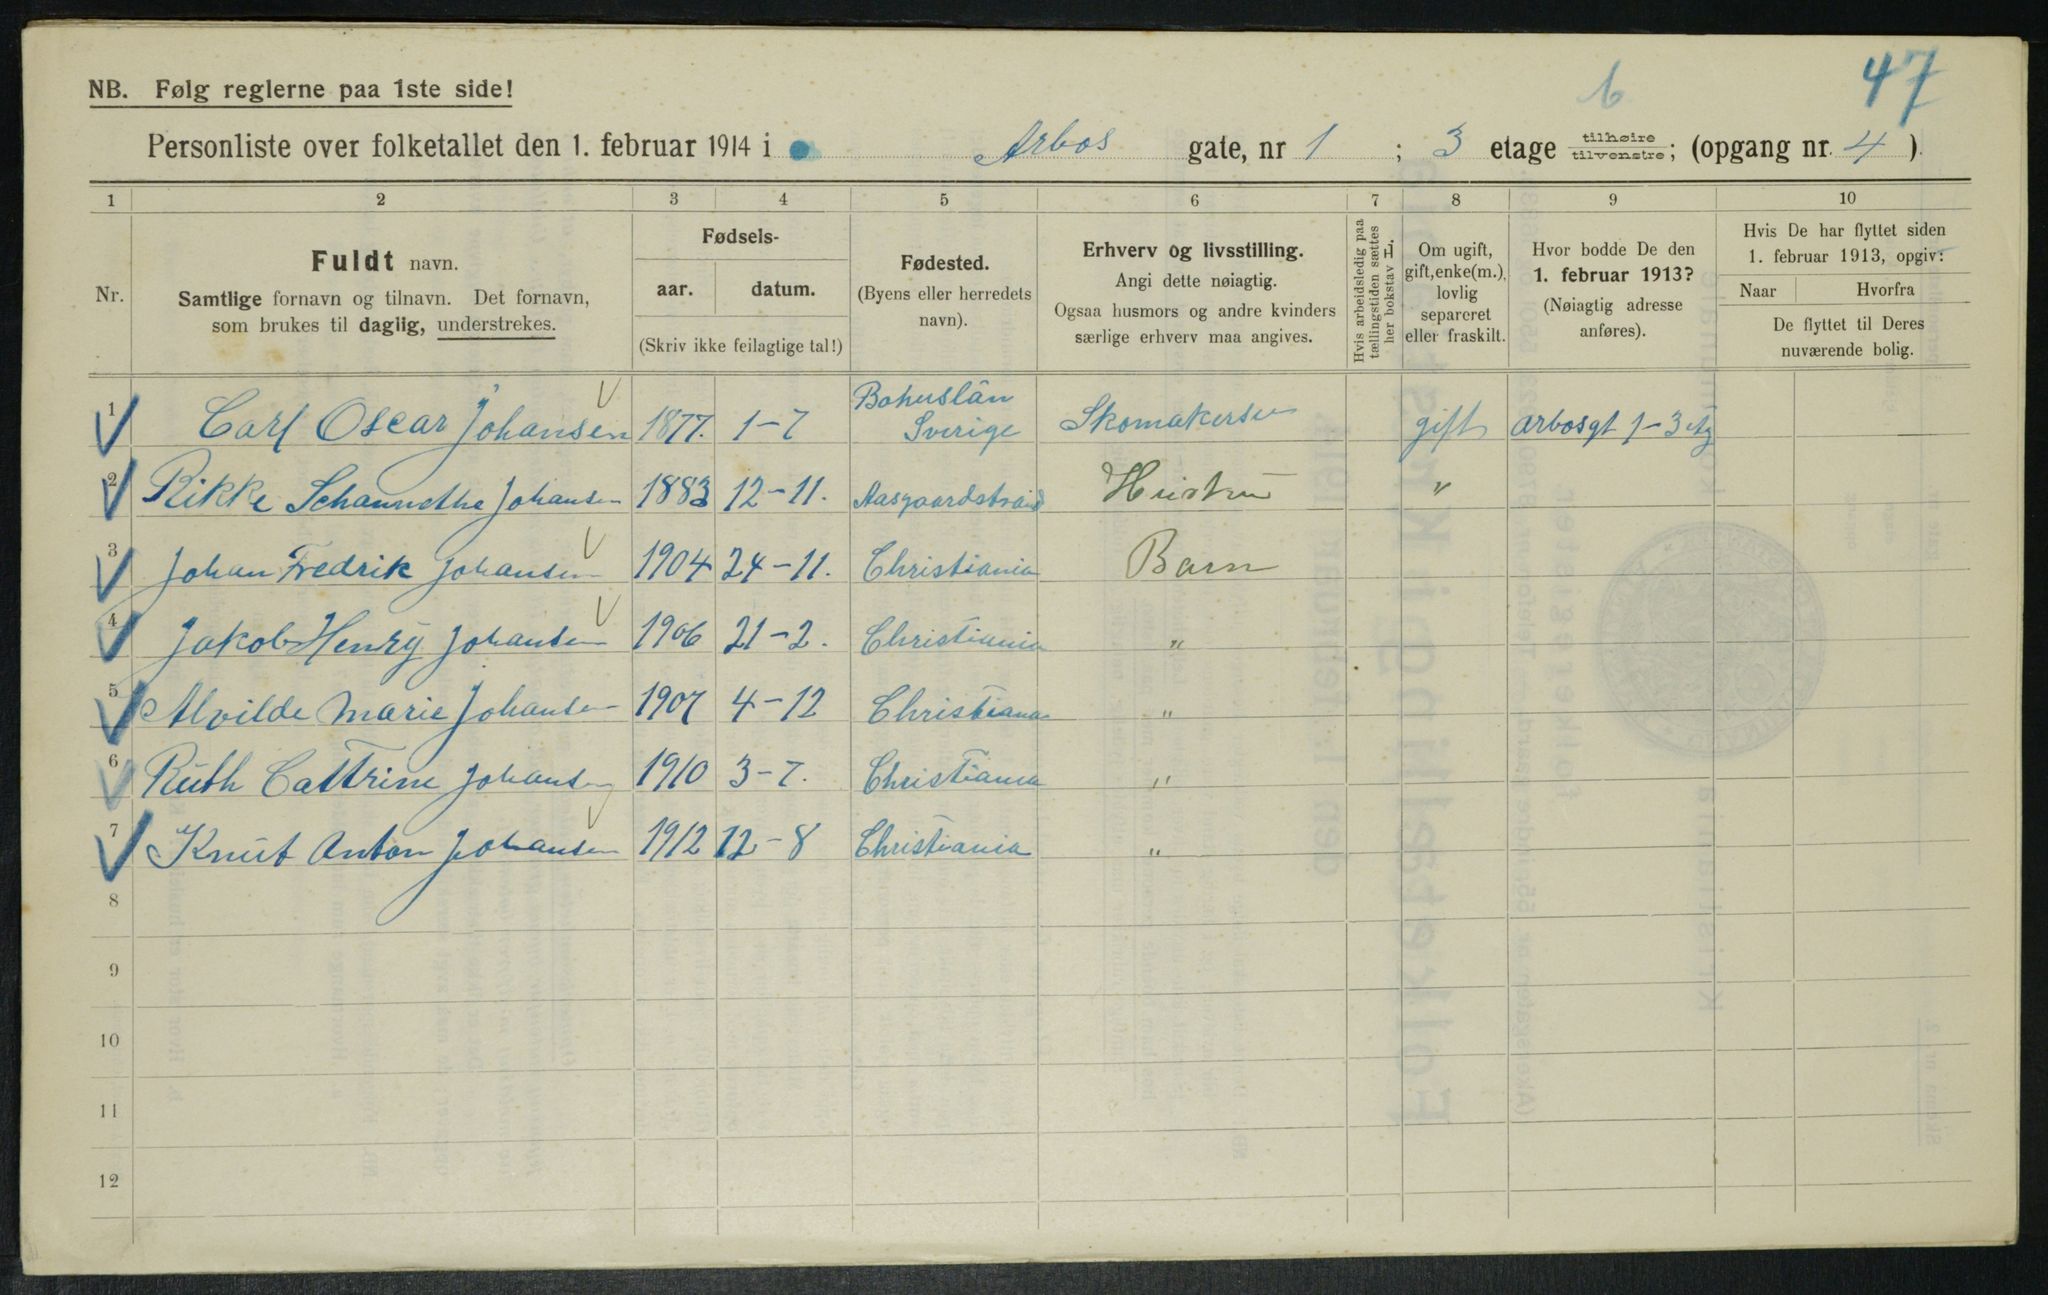 47
b
NB. Følg reglerne paa 1ste side!
Personliste over folketallet den 1. februar 1914 i Arbos gate, nr 1 ; 3 etage tilhøire tilvenstre; (opgang nr. 4 ).
1 2 3 4 5 6 7 8 9 10
Nr.
Fuldt navn.
Samtlige fornavn og tilnavn. Det fornavn,
som brukes til daglig, understrekes.
Fødsels-
aar. datum.
(Skriv ikke feilagtige tal!)
Fødested.
(Byens eller herredets
navn).
Erhverv og livsstilling.
Angi dette nøiagtig.
Ogsaa husmors og andre kvinders
særlige erhverv maa angives.
Hvis arbeidsledig paa
tællingstiden sættes
her bokstav L.
Om ugift,
gift, enke(m.),
lovlig
separeret
eller fraskilt.
Hvor bodde De den
1. februar 1913?
(Nøiagtig adresse
anføres).
Hvis De har flyttet siden
1. februar 1913, opgiv:
Naar Hvorfra
De flyttet til Deres
nuværende bolig.
1 Carl Oscar Johansen 1877. 1-7 Bohuslän Sverige gift Arbosgt 1-3 etg
2 Rikke Johansen 1883 12-11. Aasgaardstrand Hustru "
3 Johan Fredrik Johansen 1904 24-11. Christiania Barn
4 Jakob Henry Johansen 1906 21-2. Christiania "
5 Alvilde Marie Johansen 1907 4-12 Christiana "
6 Ruth Cattrine Johansen 1910 3-7. Christiania "
7 Knut Anton Johansen 1912 12-8 Christiania "
8
9
10
11
12